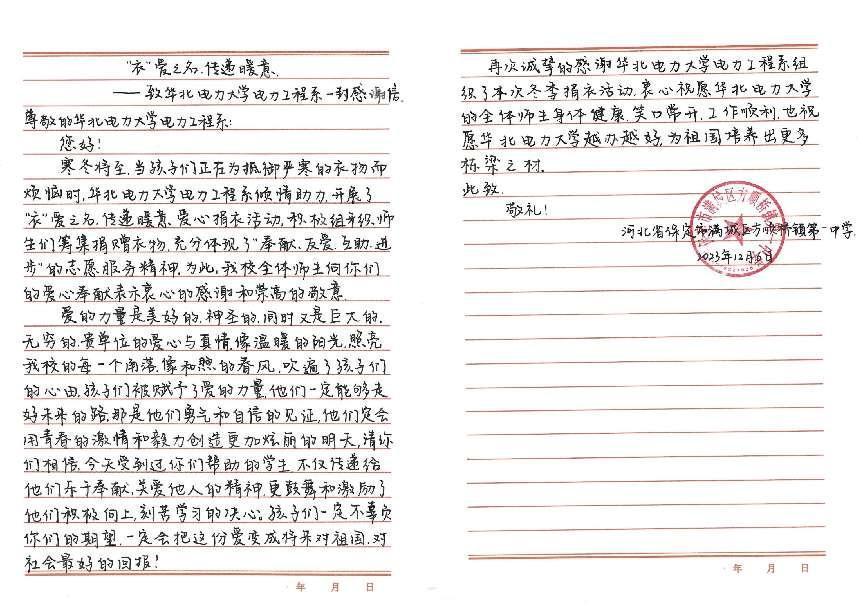 “衣”爱之名、传递暖意、
——致华北电力大学电力工程系一封感谢信
尊敬的华北电力大学电力工程系:
您好!
寒冬将至,当孩子们正在为抵御严寒的衣物而
烦恼时,华北电力大学电力工程系倾情助力,开展了
“衣”爱之名、传递暖意、爱心捐衣活动,积极组织师
生们筹集捐赠衣物,充分体现了“奉献、友爱、互助、进
步”的志愿服务精神,为此,我校全体师生向你们
的爱心奉献表示衷心的感谢和崇高的敬意.
爱的力量是美好的、神圣的、同时又是巨大的、
无穷的.贵单位的爱心与真情,像温暖的阳光,照亮
我校的每一个角落,像和煦的春风,吹遍了孩子们
的心田,孩子们被赋予了爱的力量,他们一定能够走
好未来的路,那是他们勇气和自信的见证,他们定会
用青春的激情和毅力创造更加炫丽的明天,请你
们相信,今天受到过你们帮助的学生,不仅传递给
他们乐于奉献、关爱他人的精神,更鼓舞和激励了
他们积极向上,刻苦学习的决心。孩子们一定不辜负
你们的期望,一定会把这份爱变成将来对祖国、对
社会最好的回报!
年 月 日
再次诚挚的感谢华北电力大学电力工程系组
织了本次冬季捐衣活动,衷心祝愿华北电力大学
的全体师生身体健康、笑口常开、工作顺利,也祝
愿华北电力大学越办越好,为祖国培养出更多
栋梁之材.
此致
敬礼!
河北省保定市满城区方顺桥镇第一中学
2023年12月6日
年 月 日